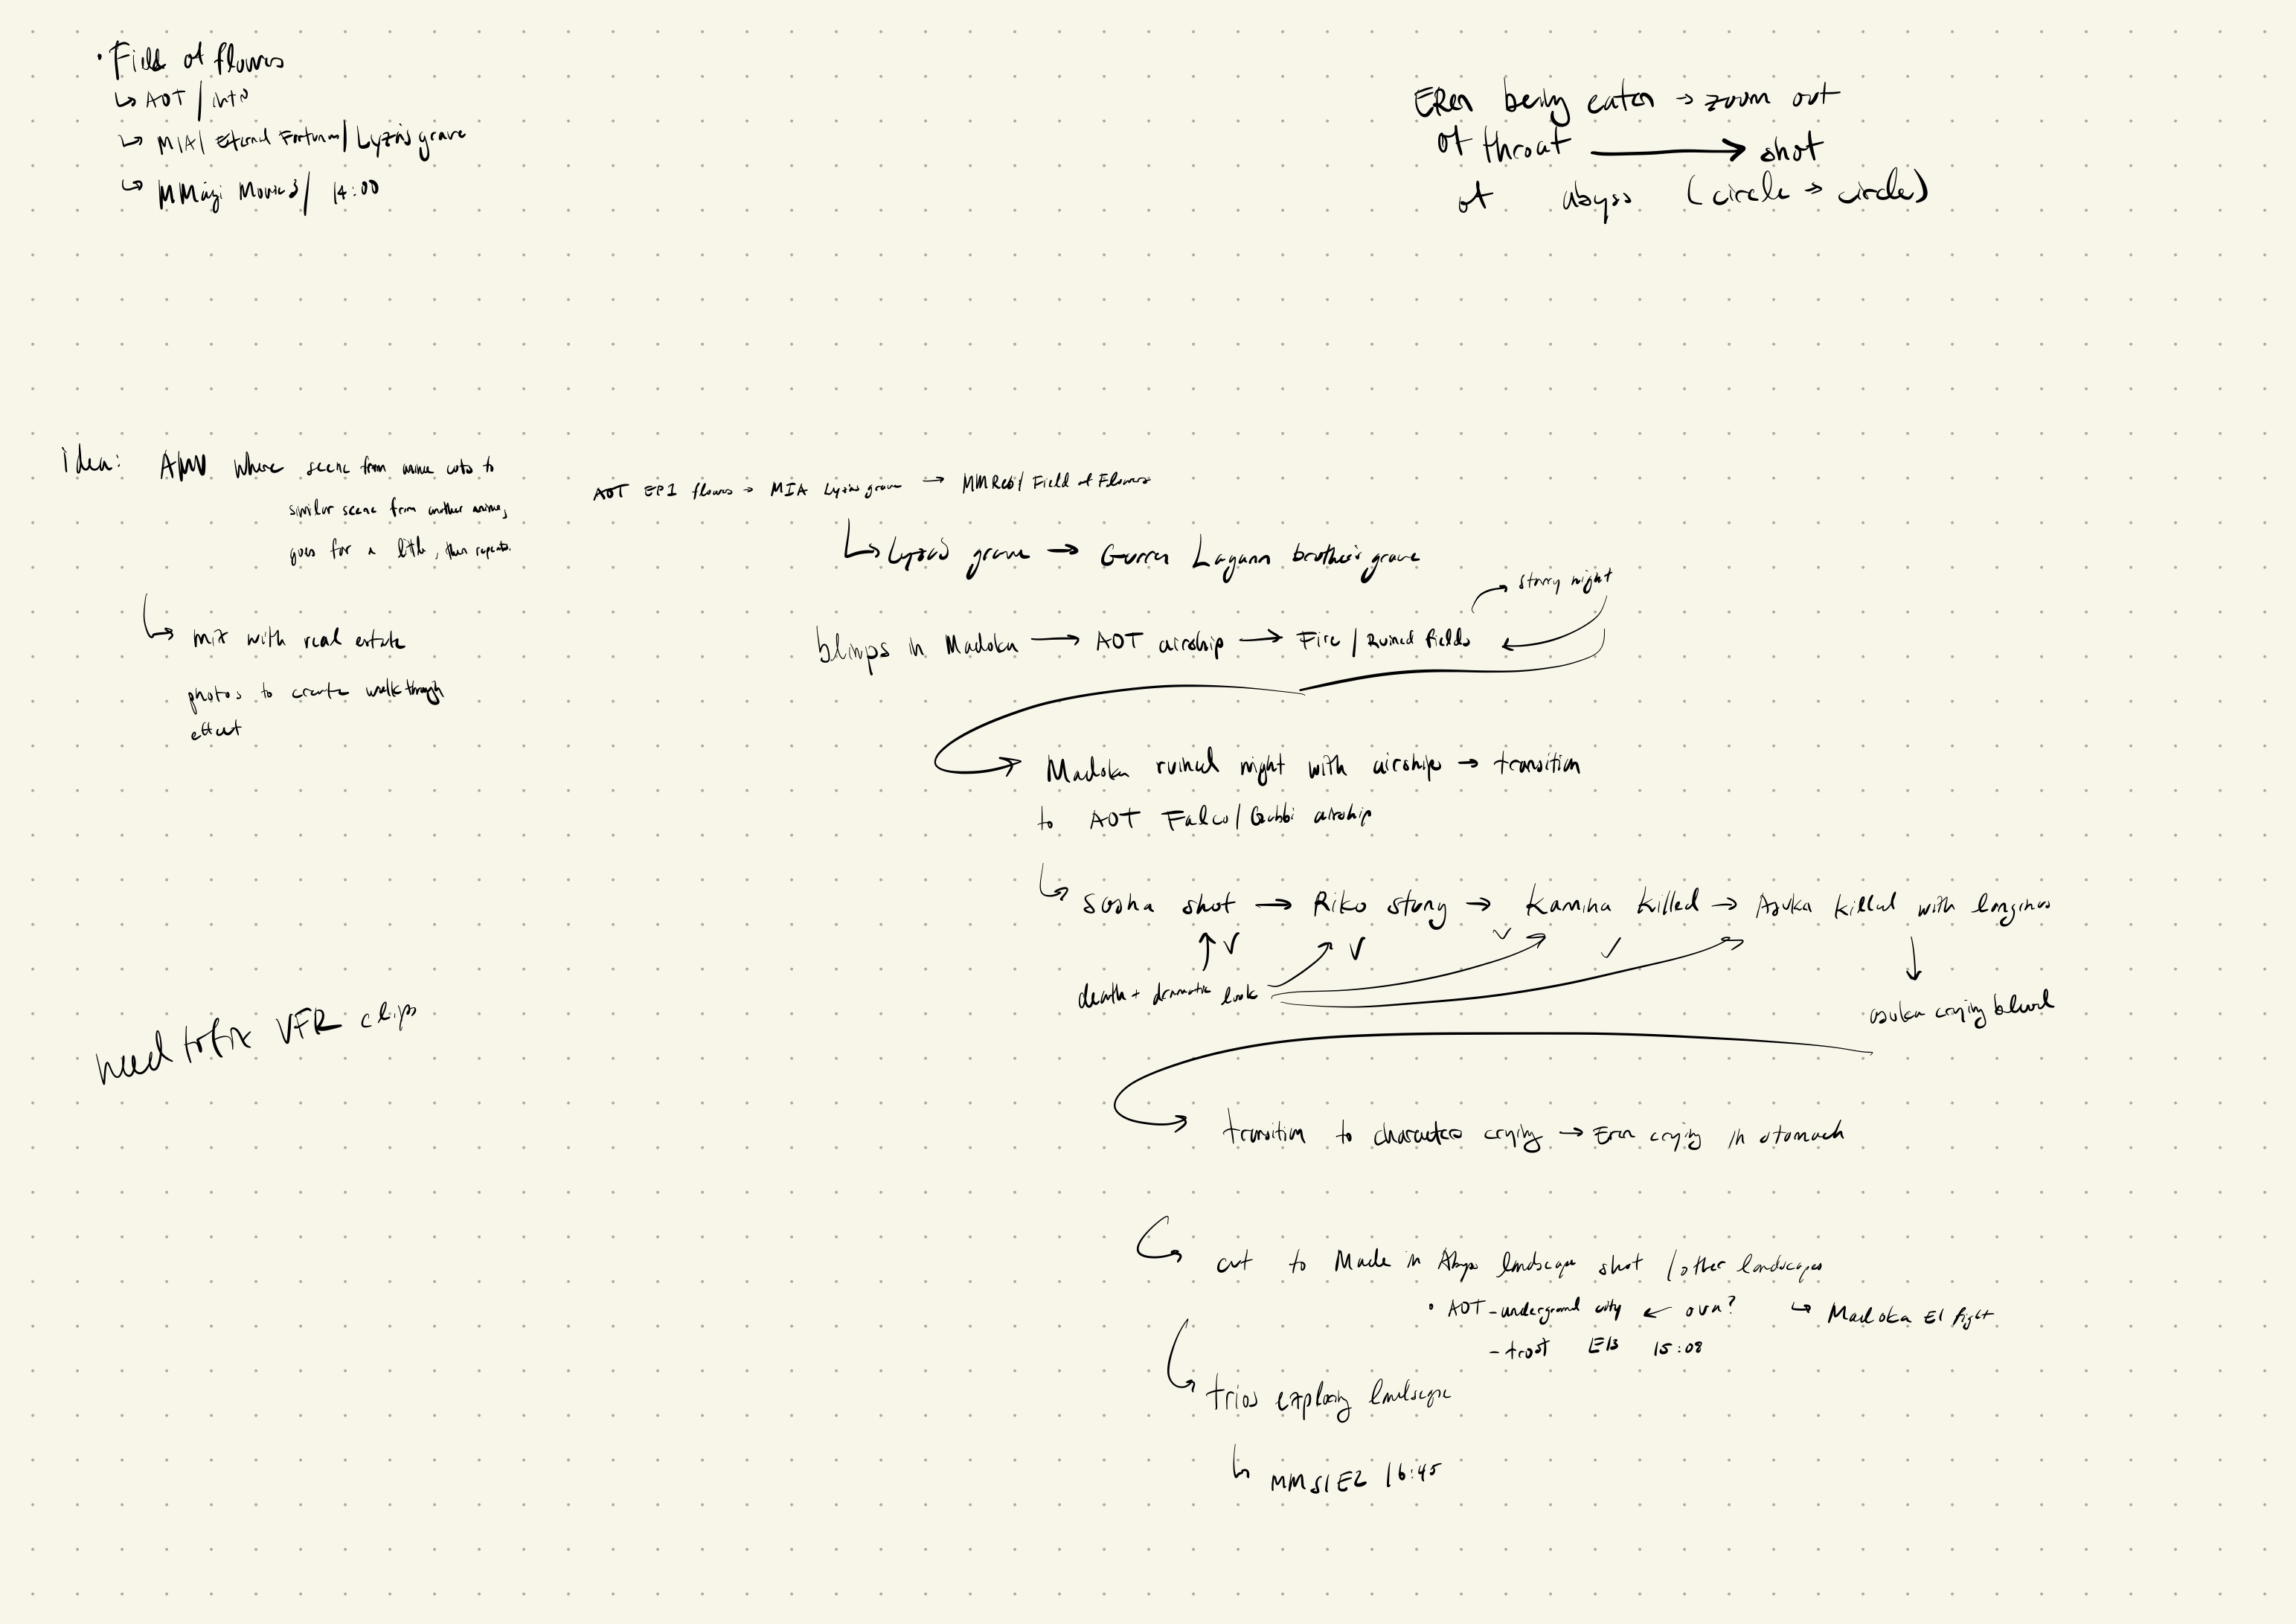 • Field of flowers
↳ AOT / intro
↳ MIA / Eternal Fortunes / Lyza's grave
↳ MMagi Movie 3 / 14:00
EREN being eaten → zoom out
of throat → shot
of abyss (circle → circle)
idea: AMV where scene from anime cuts to
similar scene from another anime,
goes for a little, then repeats.
↳ mix with real estate
photos to create walkthrough
effect
AOT EP1 flowers → MIA Lyzas grave → MM Reb / Field of Flowers
↳ Lyza's grave → Gurren Lagann brother's grave
→ starry night
blimps in Madoka → AOT airship → Fire / Ruined fields ←
→ Madoka ruined night with airship → transition
to AOT Falco / Gabbi airship
↳ Sasha shot → Riko stung → Kamina killed → Asuka killed with longinus
death + dramatic look
asuka crying blood
need to fix VFR clips
transition to characters crying → Eren crying in stomach
cut to Made in Abyss landscape shot / other landscapes
• AOT - underground city ← ova? ↳ Madoka E1 fight
- trost E13 15:08
↳ trios exploring landscape
↳ MM S1E2 16:45